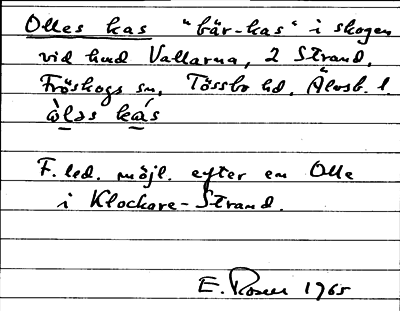 Olles kas "bär-kas" i skogen
vid hmd Vallarna, 2 Strand,
Fröskogs sn, Tössbo hd, Älvsb. l.
ò̀l₂s kás
F. led. möjl. efter en Olle
i Klockare-Strand.
E. Rosell 1965